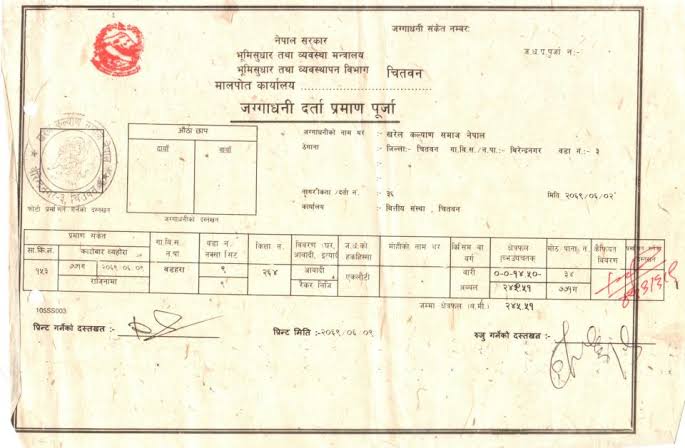 जग्गाधनी संकेत नम्बर:
नेपाल सरकार
भूमिसुधार तथा व्यवस्था मन्त्रालय
ज.ध.प.पुर्जा नं:-
भूमिसुधार तथा व्यवस्थापन विभाग
मालपोत कार्यालय चितवन
जग्गाधनी दर्ता प्रमाण पूर्जा
औंठा छाप
दायाँ बायाँ
जग्गाधनीको नाम थर :- खरेल कल्याण समाज नेपाल
ठेगाना :- जिल्ला:- चितवन गा.वि.स./न.पा.:- बिरेन्द्रनगर वडा नं.:- ३
नागरीकता /दर्ता नं. :- ३६ मिति २०६९/०६/०२
कार्यालय :- वित्तीय संस्था , चितवन
फोटो प्रमाणित गर्नेको दस्तखत
जग्गाधनीको दस्तखत
प्रमाण संकेत
सा.कि.नं. कारोबार व्यहोरा
गा.वि.स. न.पा
वडा नं. नक्सा सिट
कित्ता नं.
विवरण (घर, आवादी, इत्यादी
ज.ध.को हकहिस्सा
मोहीको नाम थर
किसिम वा वर्ग
क्षेत्रफल
मोठ पाना नं.
कैफियत विवरण
१५३ ७७ग २०६९/०६/०९ राजिनामा
बडहरा ९ २६४ आवादी एकलौटी बारी 0-0-१४.५0- ३४
९ रैकर निजि अब्बल २४५.५१ ७७ग
जम्मा क्षेत्रफल (व.मी.) २४५.५१
105SS003
प्रिन्ट गर्नेको दस्तखत :-
प्रिन्ट मिति :-२०६९/०६/०९
रुजु गर्नेको दस्तखत :-